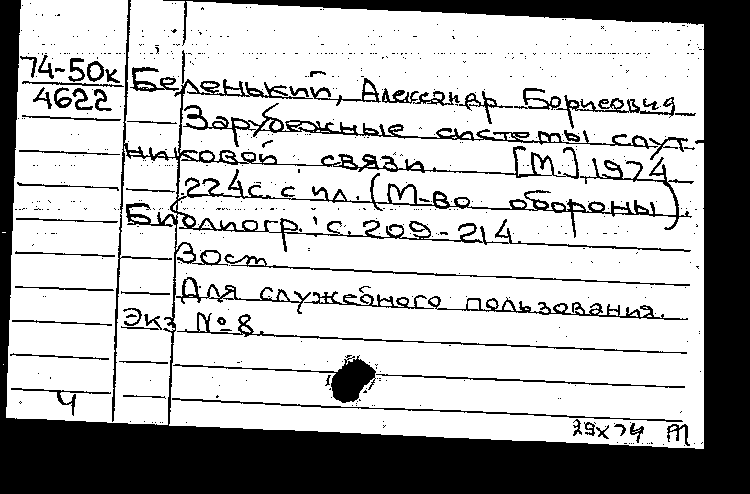 74-50к
4622
Беленький, Александр Борисович
Зарубежные системы спут-
никовой связи. [М.], 1974.
224с. с ил. (М-во обороны).
Библиогр.: с. 209-214.
Для служебного пользования.
Экз №8.
Ч
29X74